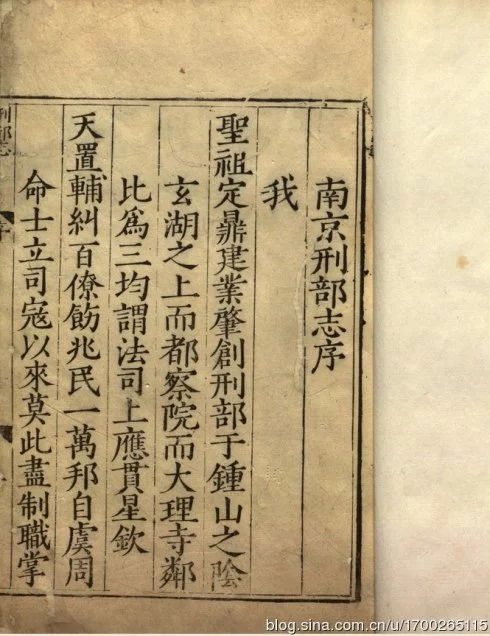 南京刑部志序
我
聖祖定鼎建業肇創刑部于鍾山之陰
玄湖之上而都察院而大理寺鄰
比爲三均謂法司上應貫星欽
天置輔糾百僚飭兆民一萬邦自虞周
命士立司寇以來莫此盡制職掌
blog.sina.com.cn/u/1700265115